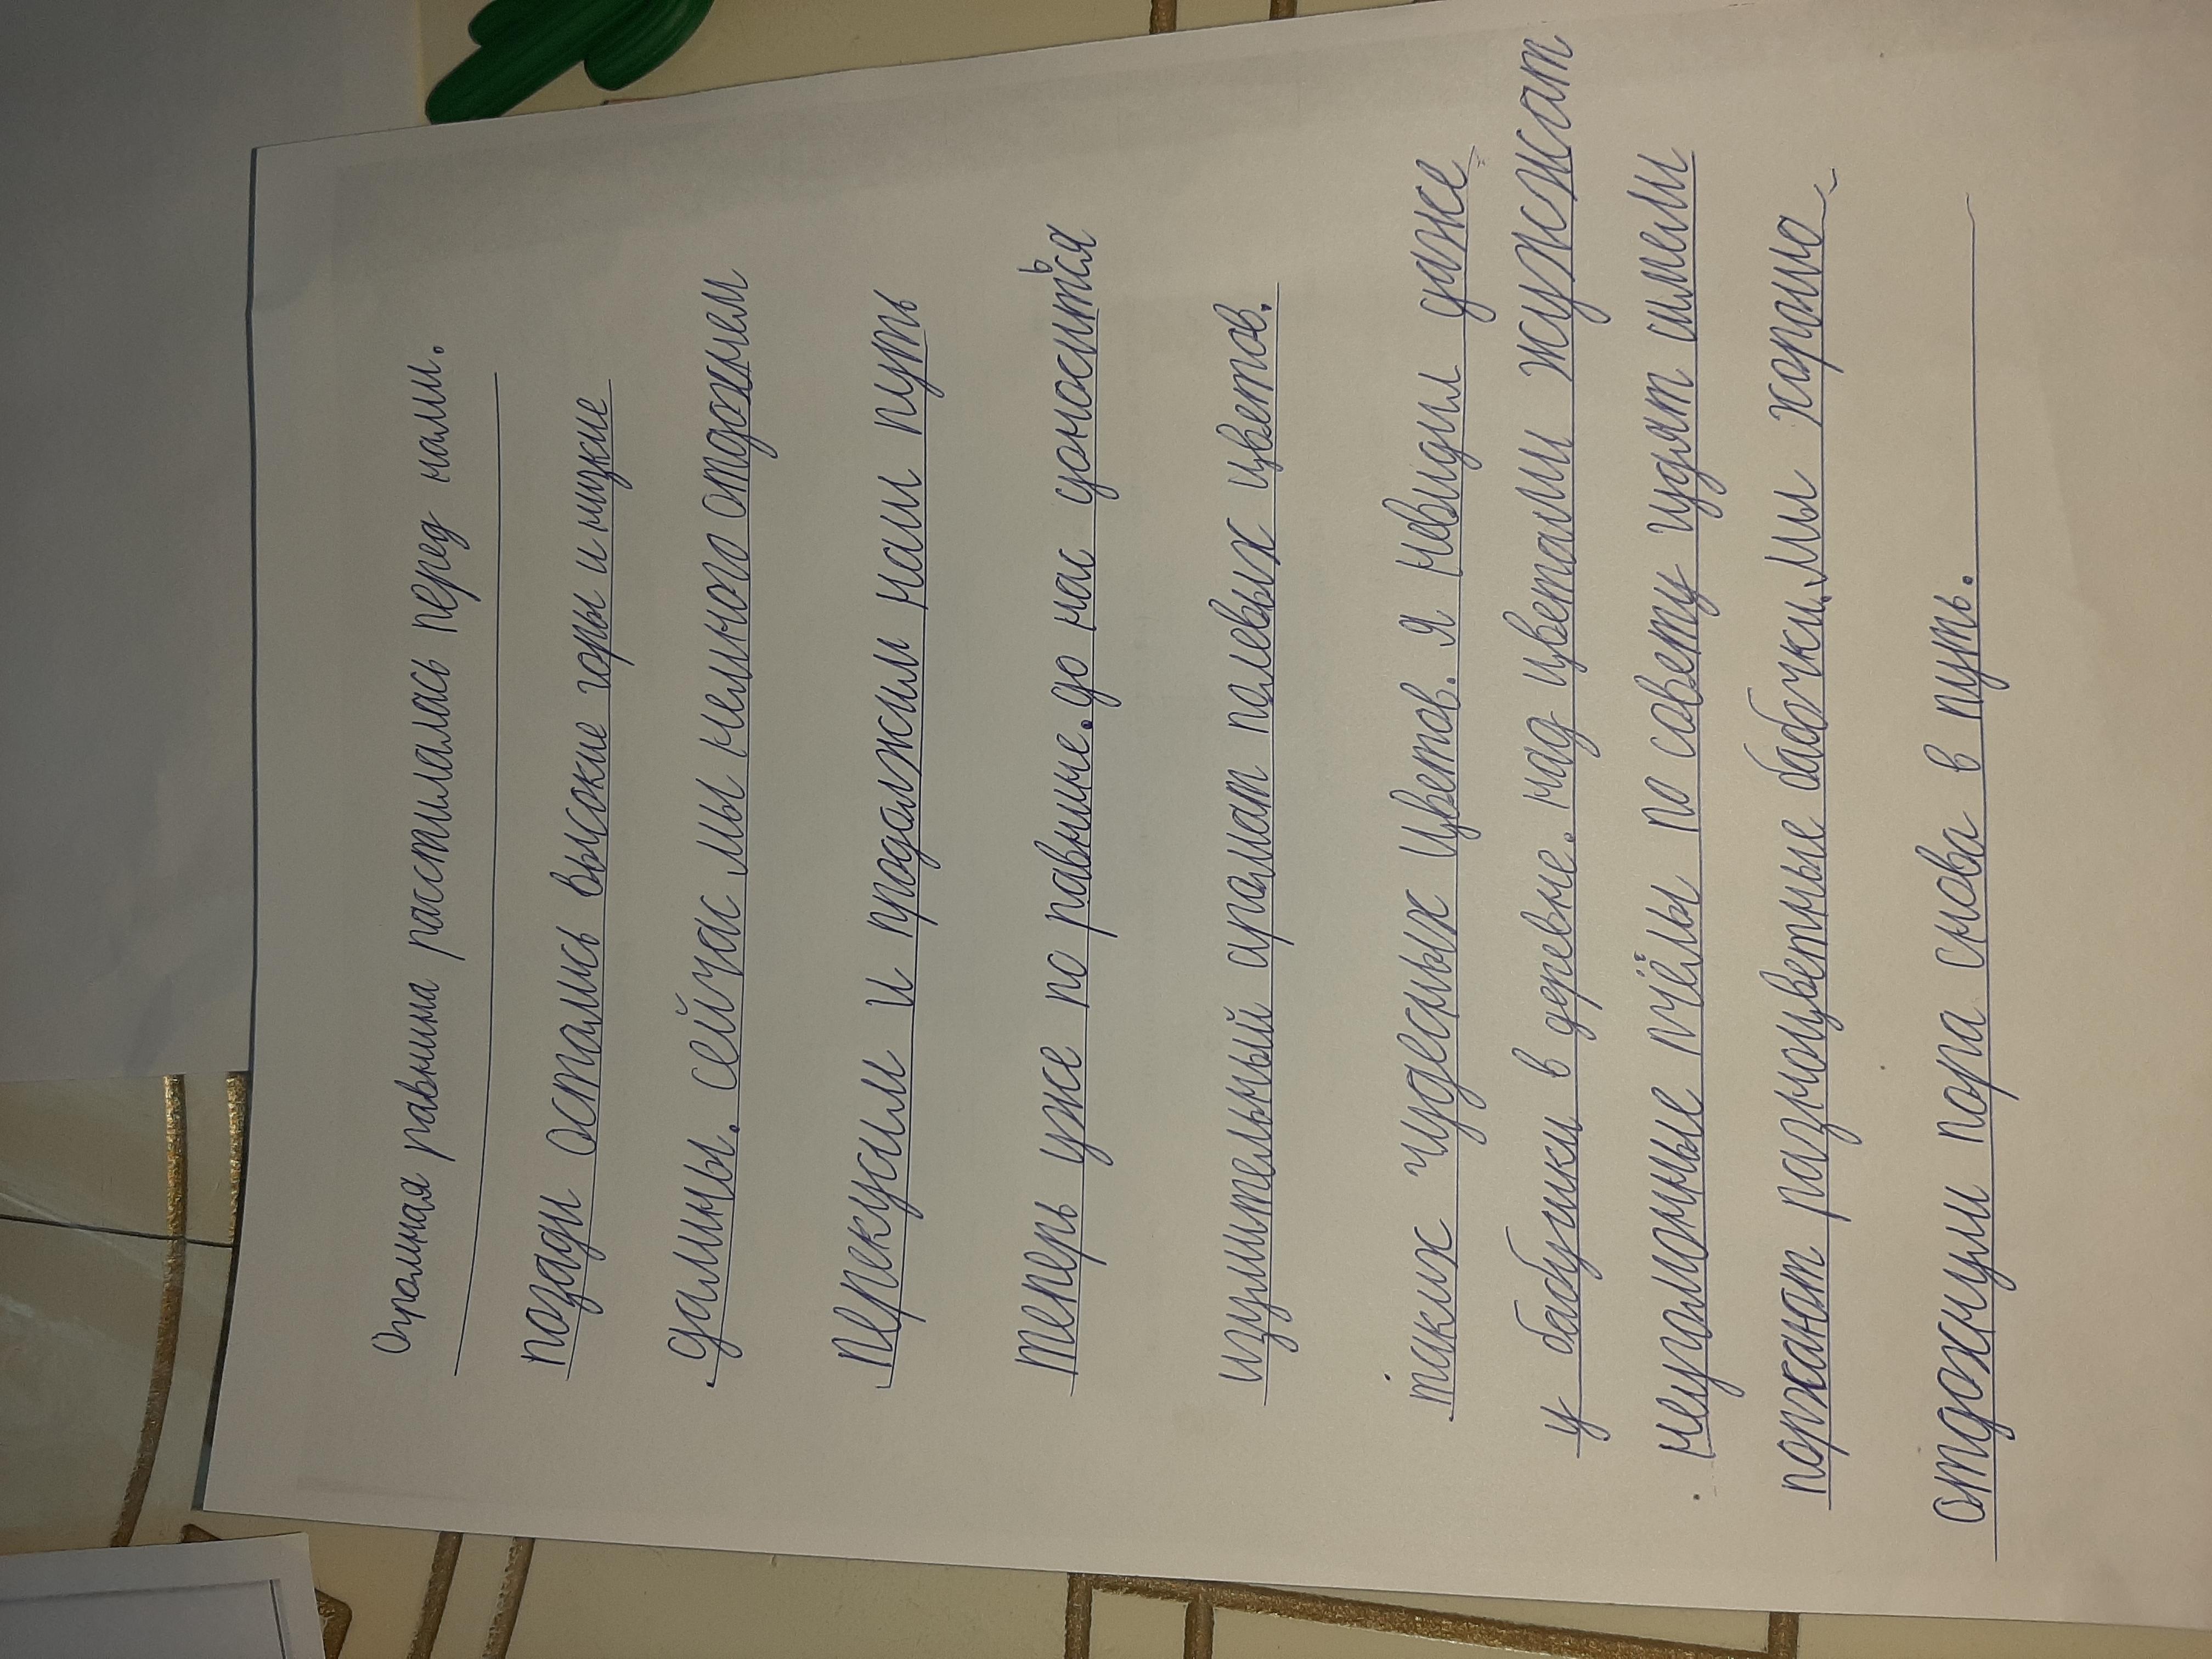 Огромная равнина расстилалась перед нами.
позади остались высокие горы и низкие
далины. сейчас мы немного отдохнем
перекусим и продалжим наш путь
теперь уже по равнине. до нас доноситься
изумительный аромат полевых цветов.
таких чудесных цветов. я невидил даже
у бабушки в деревне. над цветами жужжат
неугомонные пчёлы по совету идят шмели
поржают разноцветные бабочки. мы хорошо
отдохнули пора снова в путь.